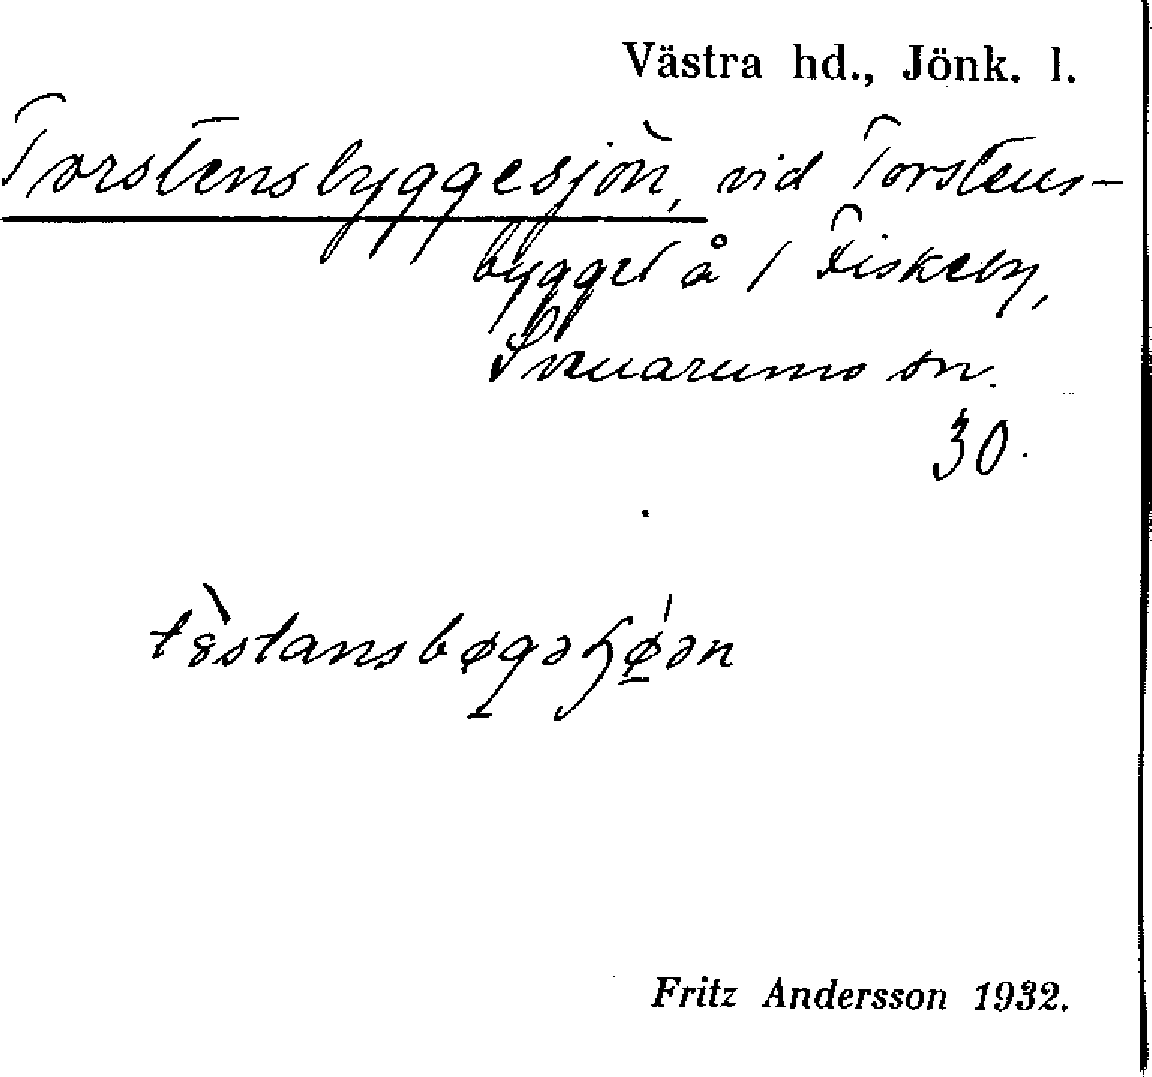 Västra hd., Jönk. l.
Torstensbyggesjön, vid Torstens-
bygget å / Fiskeby,
Svenarums sn.
30.
tȣ̀stansbøgəɧǿ̠ən
Fritz Andersson 1932.